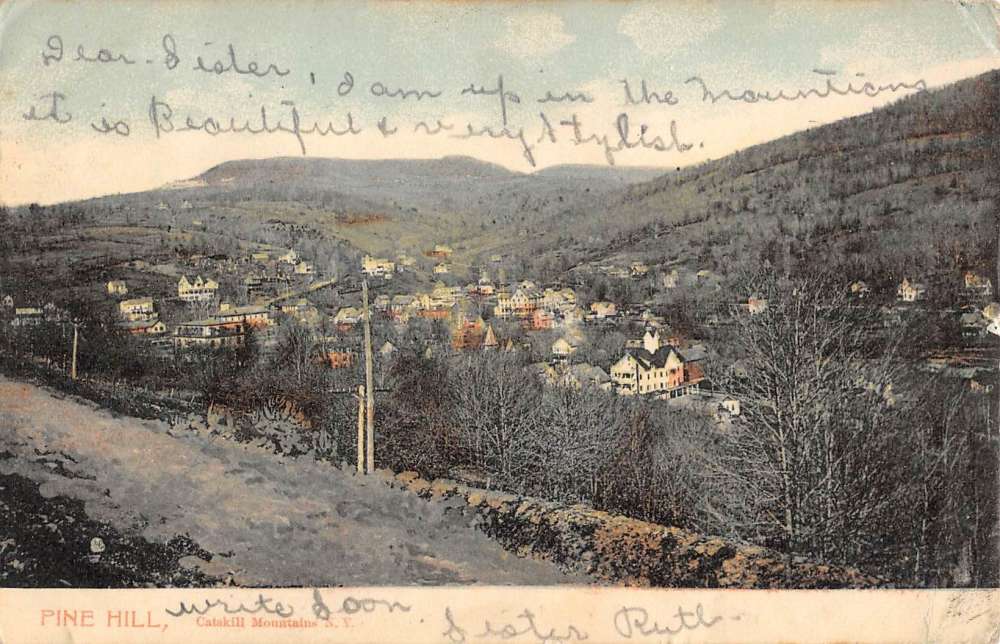 Dear Sister, I am up in the Mountians
it is Beautiful & very Stylish.
PINE HILL, Catskill Mountains N. Y.
write Soon Sister Ruth